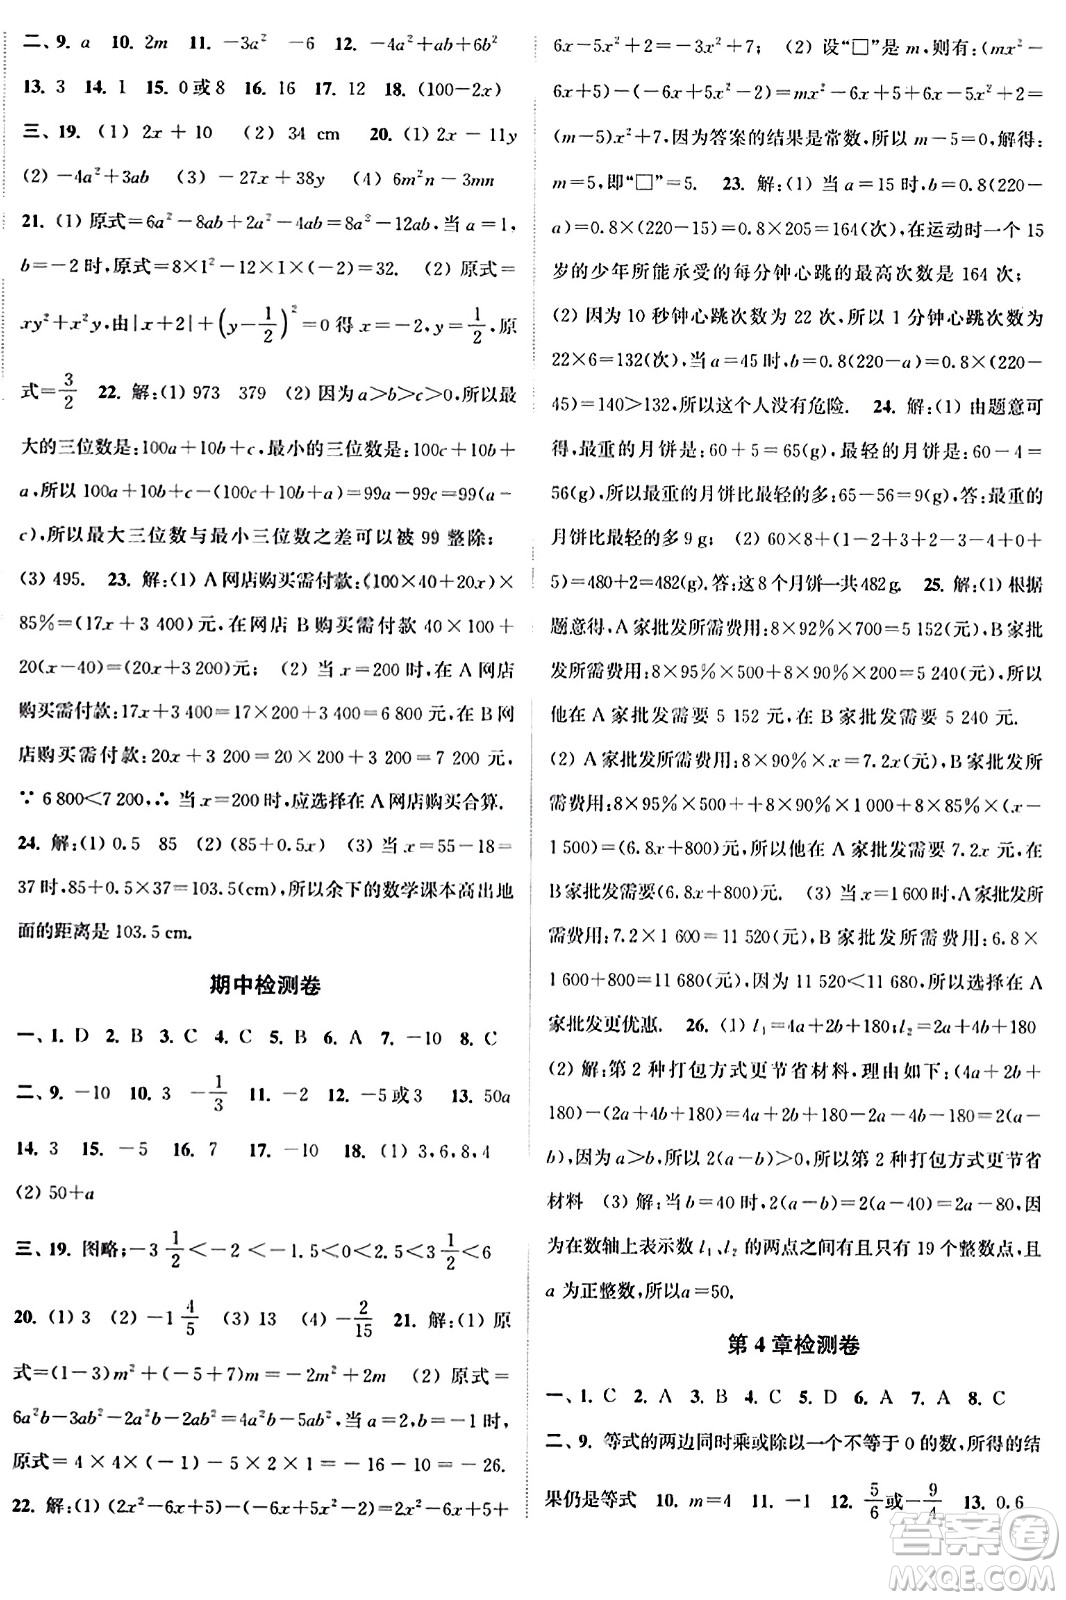 二、9. a 10. 2m 11. －3a² －6 12. －4a²＋ab＋6b²
13. 3 14. 1 15. 0或8 16. 16 17. 12 18. (100－2x)
三、19. (1) 2x＋10 (2) 34 cm 20. (1) 2x－11y
(2) －4a²＋3ab (3) －27x＋38y (4) 6m²n－3mn
21. (1) 原式＝6a²－8ab＋2a²－4ab＝8a²－12ab，当 a＝1，
b＝－2 时，原式＝8×1²－12×1×(－2)＝32. (2) 原式＝
xy²＋x²y，由|x＋2|＋(y－1/2)²＝0 得 x＝－2，y＝1/2，原
式＝3/2 22. 解：(1) 973 379 (2) 因为 a＞b＞c＞0，所以最
大的三位数是：100a＋10b＋c，最小的三位数是：100c＋10b＋
a，所以 100a＋10b＋c－(100c＋10b＋a)＝99a－99c＝99(a－
c)，所以最大三位数与最小三位数之差可以被 99 整除；
(3) 495. 23. 解：(1) A 网店购买需付款：(100×40＋20x)×
85%＝(17x＋3 400)元，在网店 B 购买需付款 40×100＋
20(x－40)＝(20x＋3 200)元； (2) 当 x＝200 时，在 A 网店
购买需付款：17x＋3 400＝17×200＋3 400＝6 800 元，在 B 网
店购买需付款：20x＋3 200＝20×200＋3 200＝7 200 元，
∵ 6 800＜7 200，∴ 当 x＝200 时，应选择在 A 网店购买合算.
24. 解：(1) 0.5 85 (2) (85＋0.5x) (3) 当 x＝55－18＝
37 时，85＋0.5×37＝103.5(cm)，所以余下的数学课本高出地
面的距离是 103.5 cm.
期中检测卷
一、1. D 2. B 3. C 4. C 5. B 6. A 7. －10 8. C
二、9. －10 10. 3 －1/3 11. －2 12. －5或3 13. 50a
14. 3 15. －5 16. 7 17. －10 18. (1) 3，6，8，4
(2) 50＋a
三、19. 图略；－3 1/2＜－2＜－1.5＜0＜2.5＜3 1/2＜6
20. (1) 3 (2) －1 4/5 (3) 13 (4) －2/15 21. 解：(1) 原
式＝(1－3)m²＋(－5＋7)m＝－2m²＋2m (2) 原式＝
6a²b－3ab²－2a²b－2ab²＝4a²b－5ab²，当 a＝2，b＝－1 时，
原式＝4×4×(－1)－5×2×1＝－16－10＝－26.
22. 解：(1) (2x²－6x＋5)－(－6x＋5x²－2)＝2x²－6x＋5＋
6x－5x²＋2＝－3x²＋7； (2) 设“□”是 m，则有：(mx²－
6x＋5)－(－6x＋5x²－2)＝mx²－6x＋5＋6x－5x²＋2＝
(m－5)x²＋7，因为答案的结果是常数，所以 m－5＝0，解得：
m＝5，即“□”＝5. 23. 解：(1) 当 a＝15 时，b＝0.8(220－
a)＝0.8×(220－15)＝0.8×205＝164(次)，在运动时一个 15
岁的少年所能承受的每分钟心跳的最高次数是 164 次；
(2) 因为 10 秒钟心跳次数为 22 次，所以 1 分钟心跳次数为
22×6＝132(次)，当 a＝45 时，b＝0.8(220－a)＝0.8×(220－
45)＝140＞132，所以这个人没有危险. 24. 解：(1) 由题意可
得，最重的月饼是：60＋5＝65(g)，最轻的月饼是：60－4＝
56(g)，所以最重的月饼比最轻的多：65－56＝9(g)，答：最重的
月饼比最轻的多 9 g； (2) 60×8＋(1－2＋3＋5－4－1＋0＋
5)＝480＋2＝482(g). 答：这 8 个月饼一共 482 g. 25. 解：(1) 根据
题意得，A 家批发所需费用：8×92%×700＝5 152(元)，B 家批
发所需费用：8×95%×500＋8×90%×200＝5 240(元)，所以
他在 A 家批发需要 5 152 元，在 B 家批发需要 5 240 元.
(2) A 家批发所需费用：8×90%×x＝7.2x(元)，B 家批发所
需费用：8×95%×500＋＋8×90%×1 000＋8×85%×(x－
1 500)＝(6.8x＋800)元，所以他在 A 家批发需要 7.2x 元，在
B 家批发需要(6.8x＋800)元. (3) 当 x＝1 600 时，A 家批发所
需费用：7.2×1 600＝11 520(元)，B 家批发所需费用：6.8×
1 600＋800＝11 680(元)，因为 11 520＜11 680，所以选择在 A
家批发更优惠. 26. (1) l₁＝4a＋2b＋180；l₂＝2a＋4b＋180
(2) 解：第 2 种打包方式更节省材料，理由如下：(4a＋2b＋
180)－(2a＋4b＋180)＝4a＋2b＋180－2a－4b－180＝2(a－
b)，因为 a＞b，所以 2(a－b)＞0，所以第 2 种打包方式更节省
材料 (3) 解：当 b＝40 时，2(a－b)＝2(a－40)＝2a－80，因
为在数轴上表示数 l₁、l₂ 的两点之间有且只有 19 个整数点，且
a 为正整数，所以a＝50.
第 4 章检测卷
一、1. C 2. A 3. B 4. C 5. D 6. A 7. A 8. C
二、9. 等式的两边同时乘或除以一个不等于 0 的数，所得的结
果仍是等式 10. m＝4 11. －1 12. 5/6或－9/4 13. 0.6
答案圈
MXQE.COM